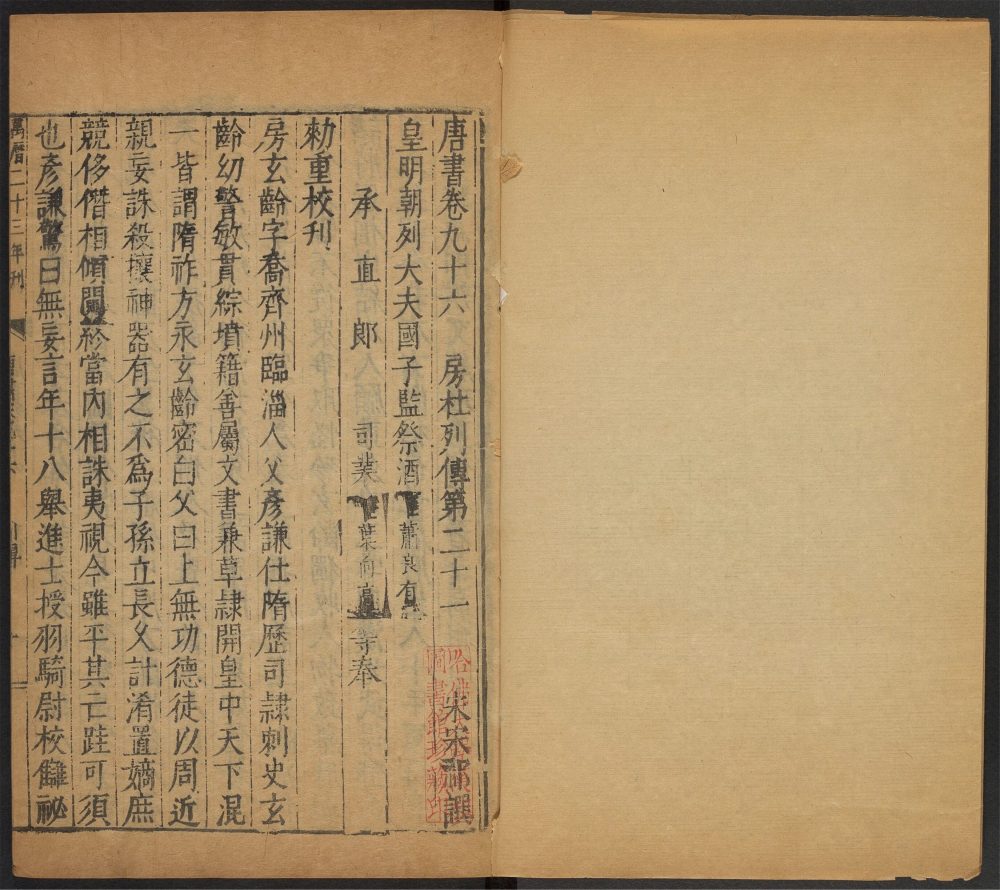 唐書卷九十六 房杜列傳第二十一
宋宋祁譔
皇明朝列大夫國子監祭酒蕭良有
承直郎司業葉向高等奉
勑重校刊
房玄齡字喬齊州臨淄人父彥謙仕隋歷司隸刺史玄
齡幼警敏貫綜墳籍善屬文書兼草隷開皇中天下混
一皆謂隋祚方永玄齡密白父曰上無功德徒以周近
親妄誅殺攘神器有之不爲子孫立長久計淆置嫡庶
競侈僭相傾鬩終當內相誅夷視今雖平其亡跬可須
也彥謙驚曰無妄言年十八舉進士授羽騎尉校讎祕
萬曆二十三年刊
列傳
哈佛
圖書館珍藏印